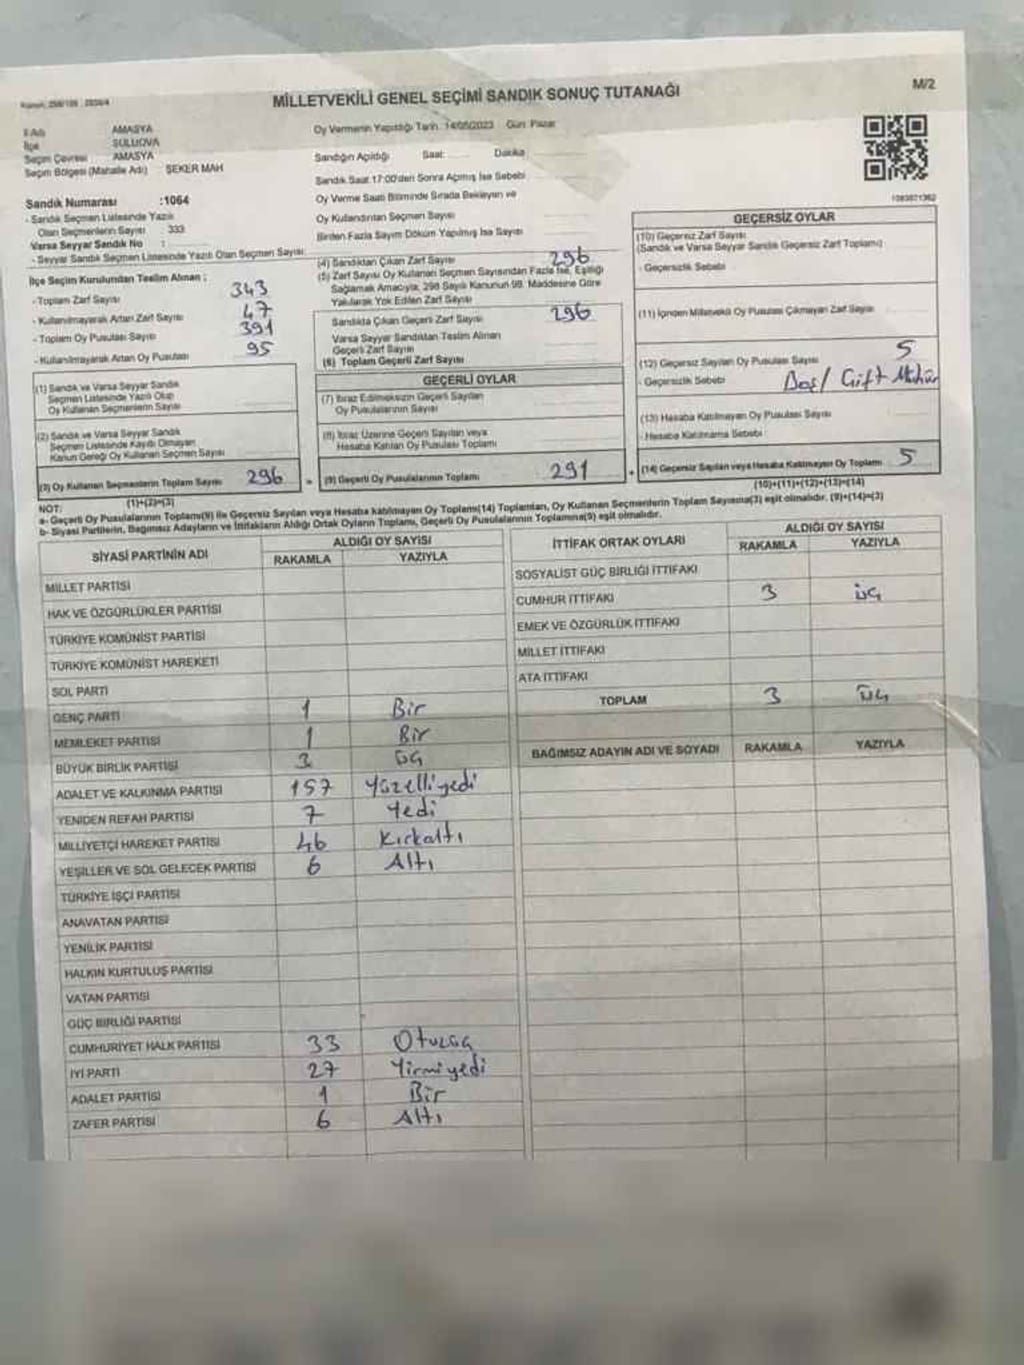 MİLLETVEKİLİ GENEL SEÇİMİ SANDIK SONUÇ TUTANAĞI
M/2
İl Adı AMASYA
İlçe SULUOVA
Seçim Çevresi AMASYA
Seçim Bölgesi (Mahalle Adı) ŞEKER MAH
Sandık Numarası :1064
- Sandık Seçmen Listesinde Yazılı
Olan Seçmenlerin Sayısı 333
Varsa Seyyar Sandık No :
- Seyyar Sandık Seçmen Listesinde Yazılı Olan Seçmen Sayısı:
İlçe Seçim Kurulundan Teslim Alınan ;
- Toplam Zarf Sayısı 343
- Kullanılmayarak Artan Zarf Sayısı 47
- Toplam Oy Pusulası Sayısı 391
- Kullanılmayarak Artan Oy Pusulası 95
(1) Sandık ve Varsa Seyyar Sandık
Seçmen Listesinde Yazılı Olup
Oy Kullanan Seçmenlerin Sayısı
(2) Sandık ve Varsa Seyyar Sandık
Seçmen Listesinde Kaydı Olmayan
Kanun Gereği Oy Kullanan Seçmen Sayısı
(3) Oy Kullanan Seçmenlerin Toplam Sayısı 296
(1)+(2)=(3)
Oy Vermenin Yapıldığı Tarih: 14/05/2023 Gün: Pazar
Sandığın Açıldığı Saat: Dakika
Sandık Saat 17:00'den Sonra Açılmış İse Sebebi
Oy Verme Saati Bitiminde Sırada Bekleyen ve
Oy Kullandırılan Seçmen Sayısı
Birden Fazla Sayım Döküm Yapılmış İse Sayısı
(4) Sandıktan Çıkan Zarf Sayısı 296
(5) Zarf Sayısı Oy Kullanan Seçmen Sayısından Fazla İse, Eşitliği
Sağlamak Amacıyla, 298 Sayılı Kanunun 98. Maddesine Göre
Yakılarak Yok Edilen Zarf Sayısı
Sandıkta Çıkan Geçerli Zarf Sayısı 296
Varsa Seyyar Sandıktan Teslim Alınan
Geçerli Zarf Sayısı
(6) Toplam Geçerli Zarf Sayısı
GEÇERLİ OYLAR
(7) İtiraz Edilmeksizin Geçerli Sayılan
Oy Pusulalarının Sayısı
(8) İtiraz Üzerine Geçerli Sayılan veya
Hesaba Katılan Oy Pusulası Toplamı
(9) Geçerli Oy Pusulalarının Toplamı 291
1083071362
GEÇERSİZ OYLAR
(10) Geçersiz Zarf Sayısı
(Sandık ve Varsa Seyyar Sandık Geçersiz Zarf Toplamı)
- Geçersizlik Sebebi
(11) İçinden Milletvekili Oy Pusulası Çıkmayan Zarf Sayısı
(12) Geçersiz Sayılan Oy Pusulası Sayısı 5
- Geçersizlik Sebebi Boş/ Çift Mühür
(13) Hesaba Katılmayan Oy Pusulası Sayısı
- Hesaba Katılmama Sebebi
(14) Geçersiz Sayılan veya Hesaba Katılmayan Oy Toplamı 5
(10)+(11)+(12)+(13)=(14)
NOT:
a- Geçerli Oy Pusulalarının Toplamı(9) ile Geçersiz Sayılan veya Hesaba katılmayan Oy Toplamı(14) Toplamları, Oy Kullanan Seçmenlerin Toplam Sayısına(3) eşit olmalıdır. (9)+(14)=(3)
b- Siyasi Partilerin, Bağımsız Adayların ve İttifakların Aldığı Ortak Oyların Toplamı, Geçerli Oy Pusulalarının Toplamına(9) eşit olmalıdır.
SİYASİ PARTİNİN ADI
ALDIĞI OY SAYISI
RAKAMLA YAZIYLA
MİLLET PARTİSİ
HAK VE ÖZGÜRLÜKLER PARTİSİ
TÜRKİYE KOMÜNİST PARTİSİ
TÜRKİYE KOMÜNİST HAREKETİ
SOL PARTİ
GENÇ PARTİ 1 Bir
MEMLEKET PARTİSİ 1 Bir
BÜYÜK BİRLİK PARTİSİ 3 üç
ADALET VE KALKINMA PARTİSİ 157 Yüzelliyedi
YENİDEN REFAH PARTİSİ 7 Yedi
MİLLİYETÇİ HAREKET PARTİSİ 46 Kırkaltı
YEŞİLLER VE SOL GELECEK PARTİSİ 6 Altı
TÜRKİYE İŞÇİ PARTİSİ
ANAVATAN PARTİSİ
YENİLİK PARTİSİ
HALKIN KURTULUŞ PARTİSİ
VATAN PARTİSİ
GÜÇ BİRLİĞİ PARTİSİ
CUMHURİYET HALK PARTİSİ 33 Otuzüç
İYİ PARTİ 27 Yirmiyedi
ADALET PARTİSİ 1 Bir
ZAFER PARTİSİ 6 Altı
İTTİFAK ORTAK OYLARI
ALDIĞI OY SAYISI
RAKAMLA YAZIYLA
SOSYALİST GÜÇ BİRLİĞİ İTTİFAKI
CUMHUR İTTİFAKI 3 üç
EMEK VE ÖZGÜRLÜK İTTİFAKI
MİLLET İTTİFAKI
ATA İTTİFAKI
TOPLAM 3 üç
BAĞIMSIZ ADAYIN ADI VE SOYADI RAKAMLA YAZIYLA